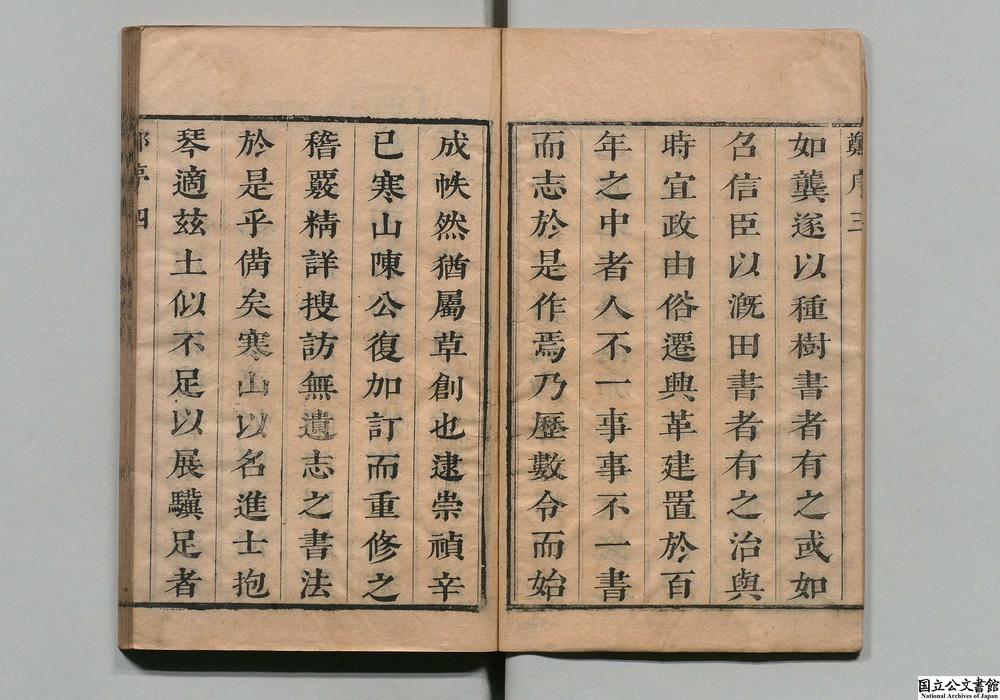 如龔遂以種樹書者有之或如
召信臣以溉田書者有之治與
時宜政由俗遷興革建置於百
年之中者人不一事事不一書
而志於是作焉乃歷數令而始
成帙然猶屬草創也逮崇禎辛
已寒山陳公復加訂而重修之
稽覈精詳搜訪無遺志之書法
於是乎備矣寒山以名進士抱
琴適茲土似不足以展驥足者
四
国立公文書館
National Archives of Japan